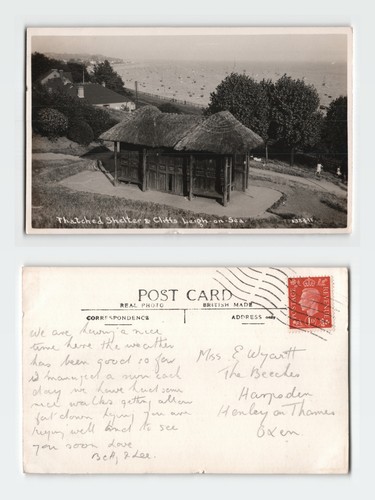 Thatched Shelter & Cliffs Leigh-on-Sea
POST CARD
REAL PHOTO BRITISH MADE
CORRESPONDENCE ADDRESS
We are having a nice
time here the weather
has been good so far
& managed a swim each
day we have had some
nice walks getting
fat down you are
well and to see
you soon love
Miss E Wyatt
The Beeches
Harpsden
Henley on Thames
Oxon